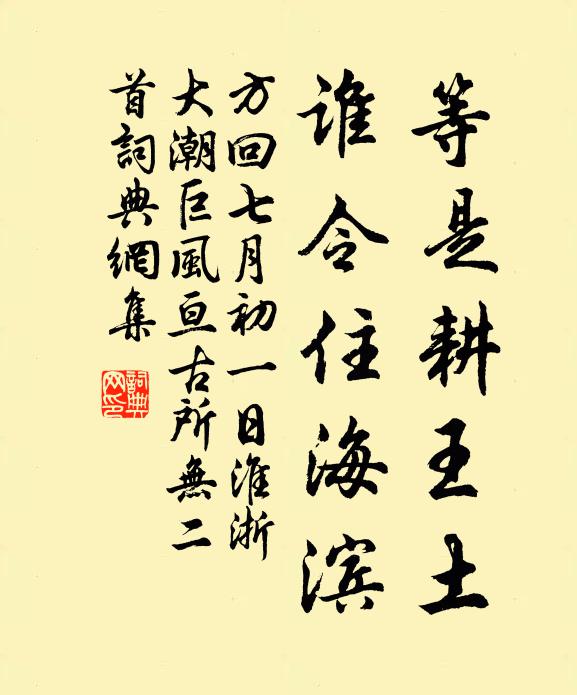 等是耕王土
谁令住海滨
方回七月初一日淮浙
大潮巨風亘古所無二
首詞典網集
詞典网印